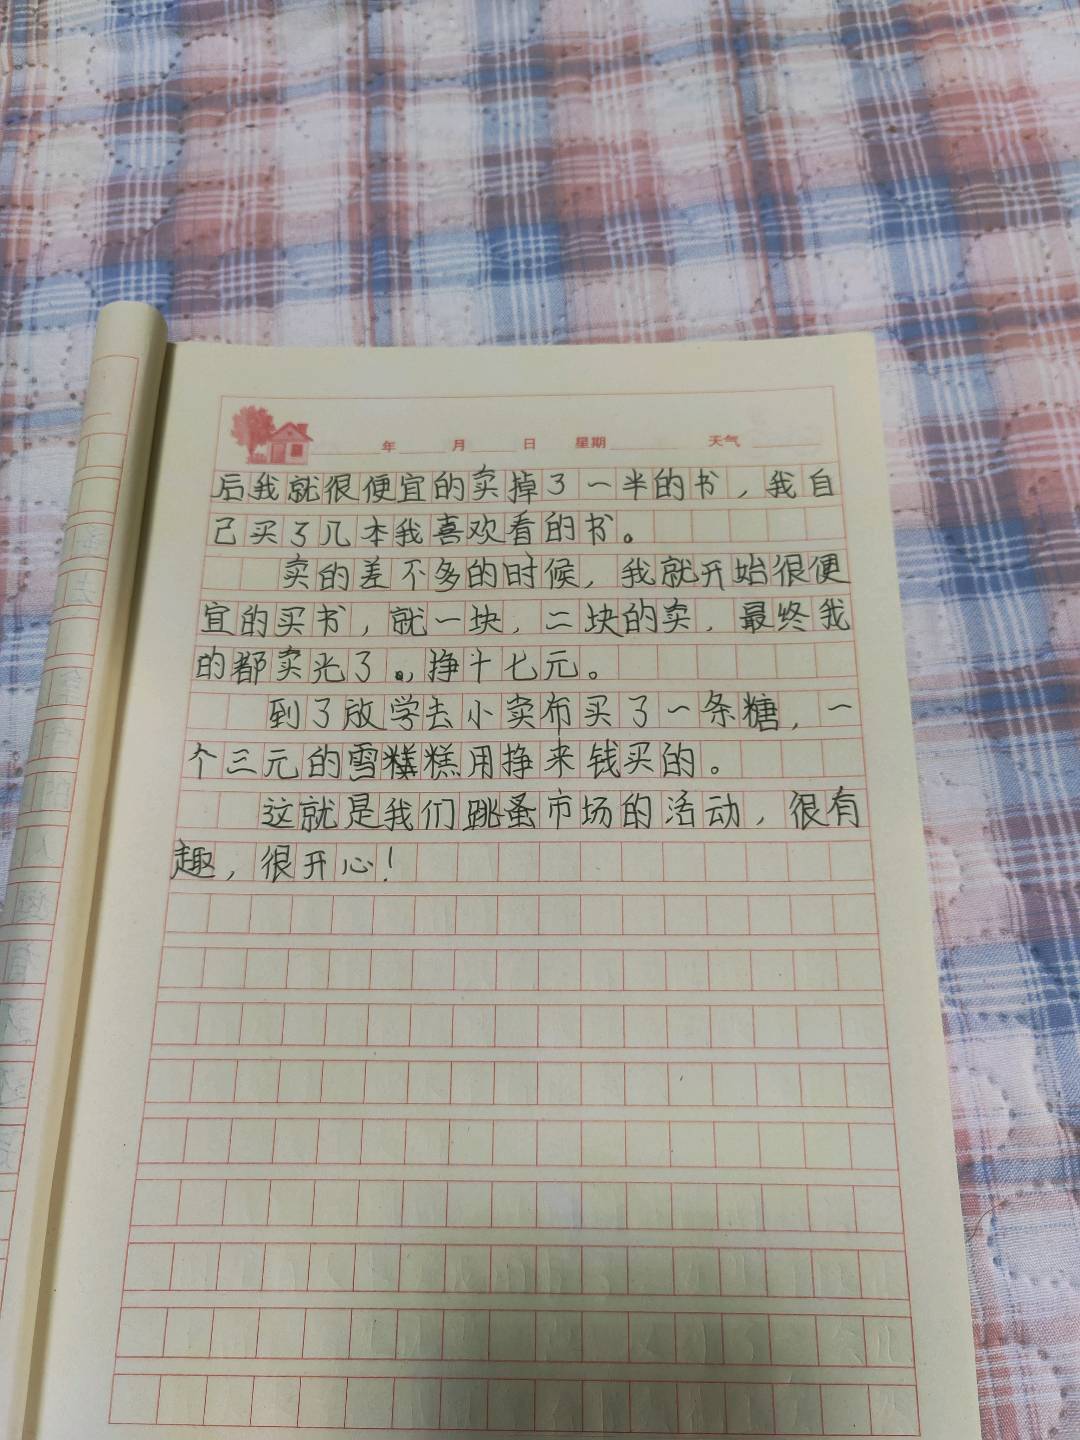 年 月 日 星期 天气
后我就很便宜的卖掉了一半的书，我自
己买了几本我喜欢看的书。
卖的差不多的时候，我就开始很便
宜的买书，就一块，二块的卖，最终我
的都卖光了。，挣十七元。
到了放学去小卖布买了一条糖，一
个三元的雪糕糕用挣来钱买的。
这就是我们跳蚤市场的活动，很有
趣，很开心！